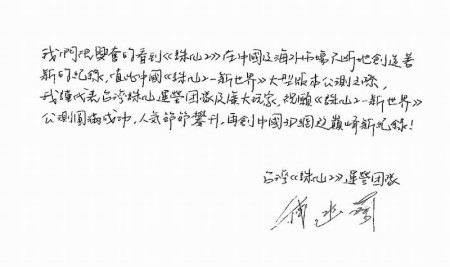 我們很興奮的看到《誅仙2》在中國及海外市場不斷地創造著
新的紀錄，值此中國《誅仙2-新世界》大型版本公測之際，
我謹代表台灣誅仙運營團隊及廣大玩家，祝願《誅仙2-新世界》
公測圓滿成功，人氣節節攀升，再創中國3D網遊巔峰新紀錄！
台灣《誅仙2》運營團隊